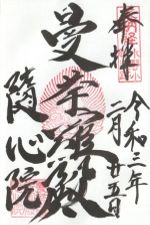 奉拝
令和三年
二月廿五日
曼荼羅殿
隨心院